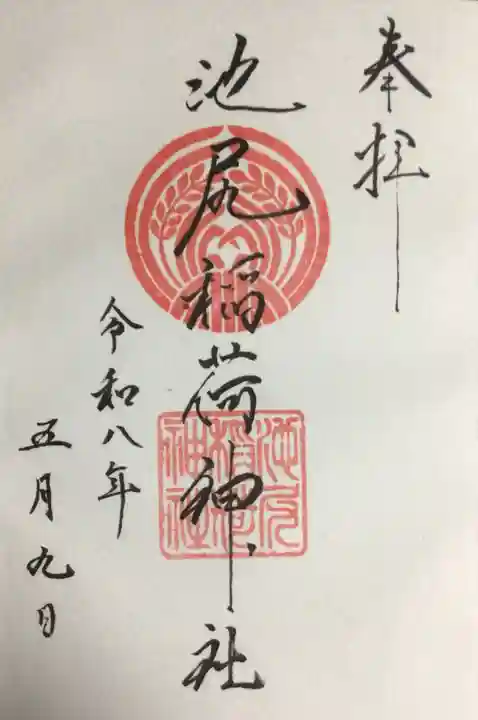 奉拝
池尻稲荷神社
池尻稲荷神社
令和八年
五月九日